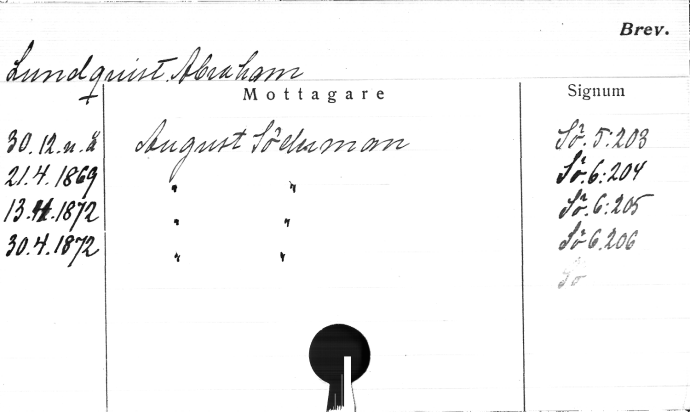 Brev.
Lundquist Abraham
Mottagare Signum
30.12.u.å August Söderman Sö. 5:203
21.4.1869 " " Sö. 6:204
13.4.1872 " " Sö. 6:205
30.4.1872 " " Sö 6.206
Sö